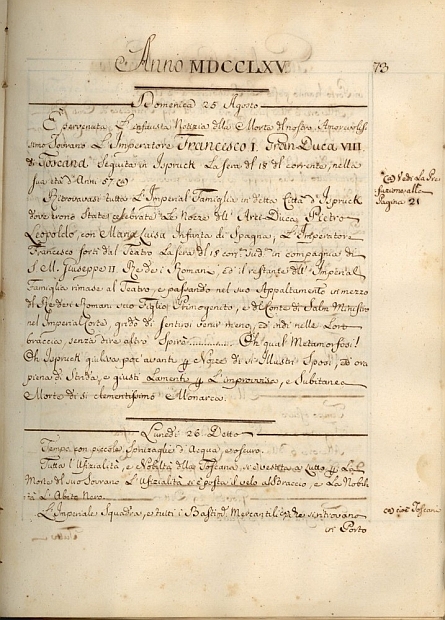 Anno MDCCLXV
73
Domenica 25 Agosto
E' pervenuta L'infausta Notizia della Morte del nostro Amorevolis-
simo Sovrano L'Imperatore Francesco I. Gran Duca VIII
di Toscana Seguita in Ispruck La sera del 18 del corrente, nella
sua età d'Anni 57 (a)
(a) Vedi La Pre-
fazione alla
Pagina 21
Ritrovavasi tutta L'Imperial Famiglia in detta Città d'Ispruck
dove erono State celebrate Le Nozze dell'Arci-Duca Pietro
Leopoldo, con Maria Luisa Infanta di Spagna, L'Imperatore
Francesco sortì dal Teatro La sera del 18 in compagnia di
S. M. Giuseppe II Re de i Romani, ed il restante dell'Imperial
Famiglia rimase al Teatro, e passando nel suo Appartamento in mezzo
del Re dei Romani suo Figlio Primogenito, e del Conte di Salm Ministro
nel Imperial Corte, gridò di sentirsi venir meno, ed indi nelle Loro
braccia, senza dire altro Spirò............ Oh qual Metamorfosi!
Oh Ispruck giuliva poc'avanti p Nozze di sì Illustri Sposi, ed ora
piena di Strida, e giusti Lamenti p L'improvvisa, e Subitanea
Morte di sì clementissimo Monarca.
Lunedì 26 Detto
Tempo con piccole Spruzzaglie d'Acqua, e oscuro.
Tutta l'Ufizialità, e Nobiltà della Toscana, si è vestita a Lutto p La
Morte del suo Sovrano L'Ufizialità si è posta il velo al Braccio, e La Nobil-
tà L'Abito Nero
L'Imperiale Squadra, e tutti i Bastim. Mercantili che si ritrovano
(a) cioè Toscani
in Porto